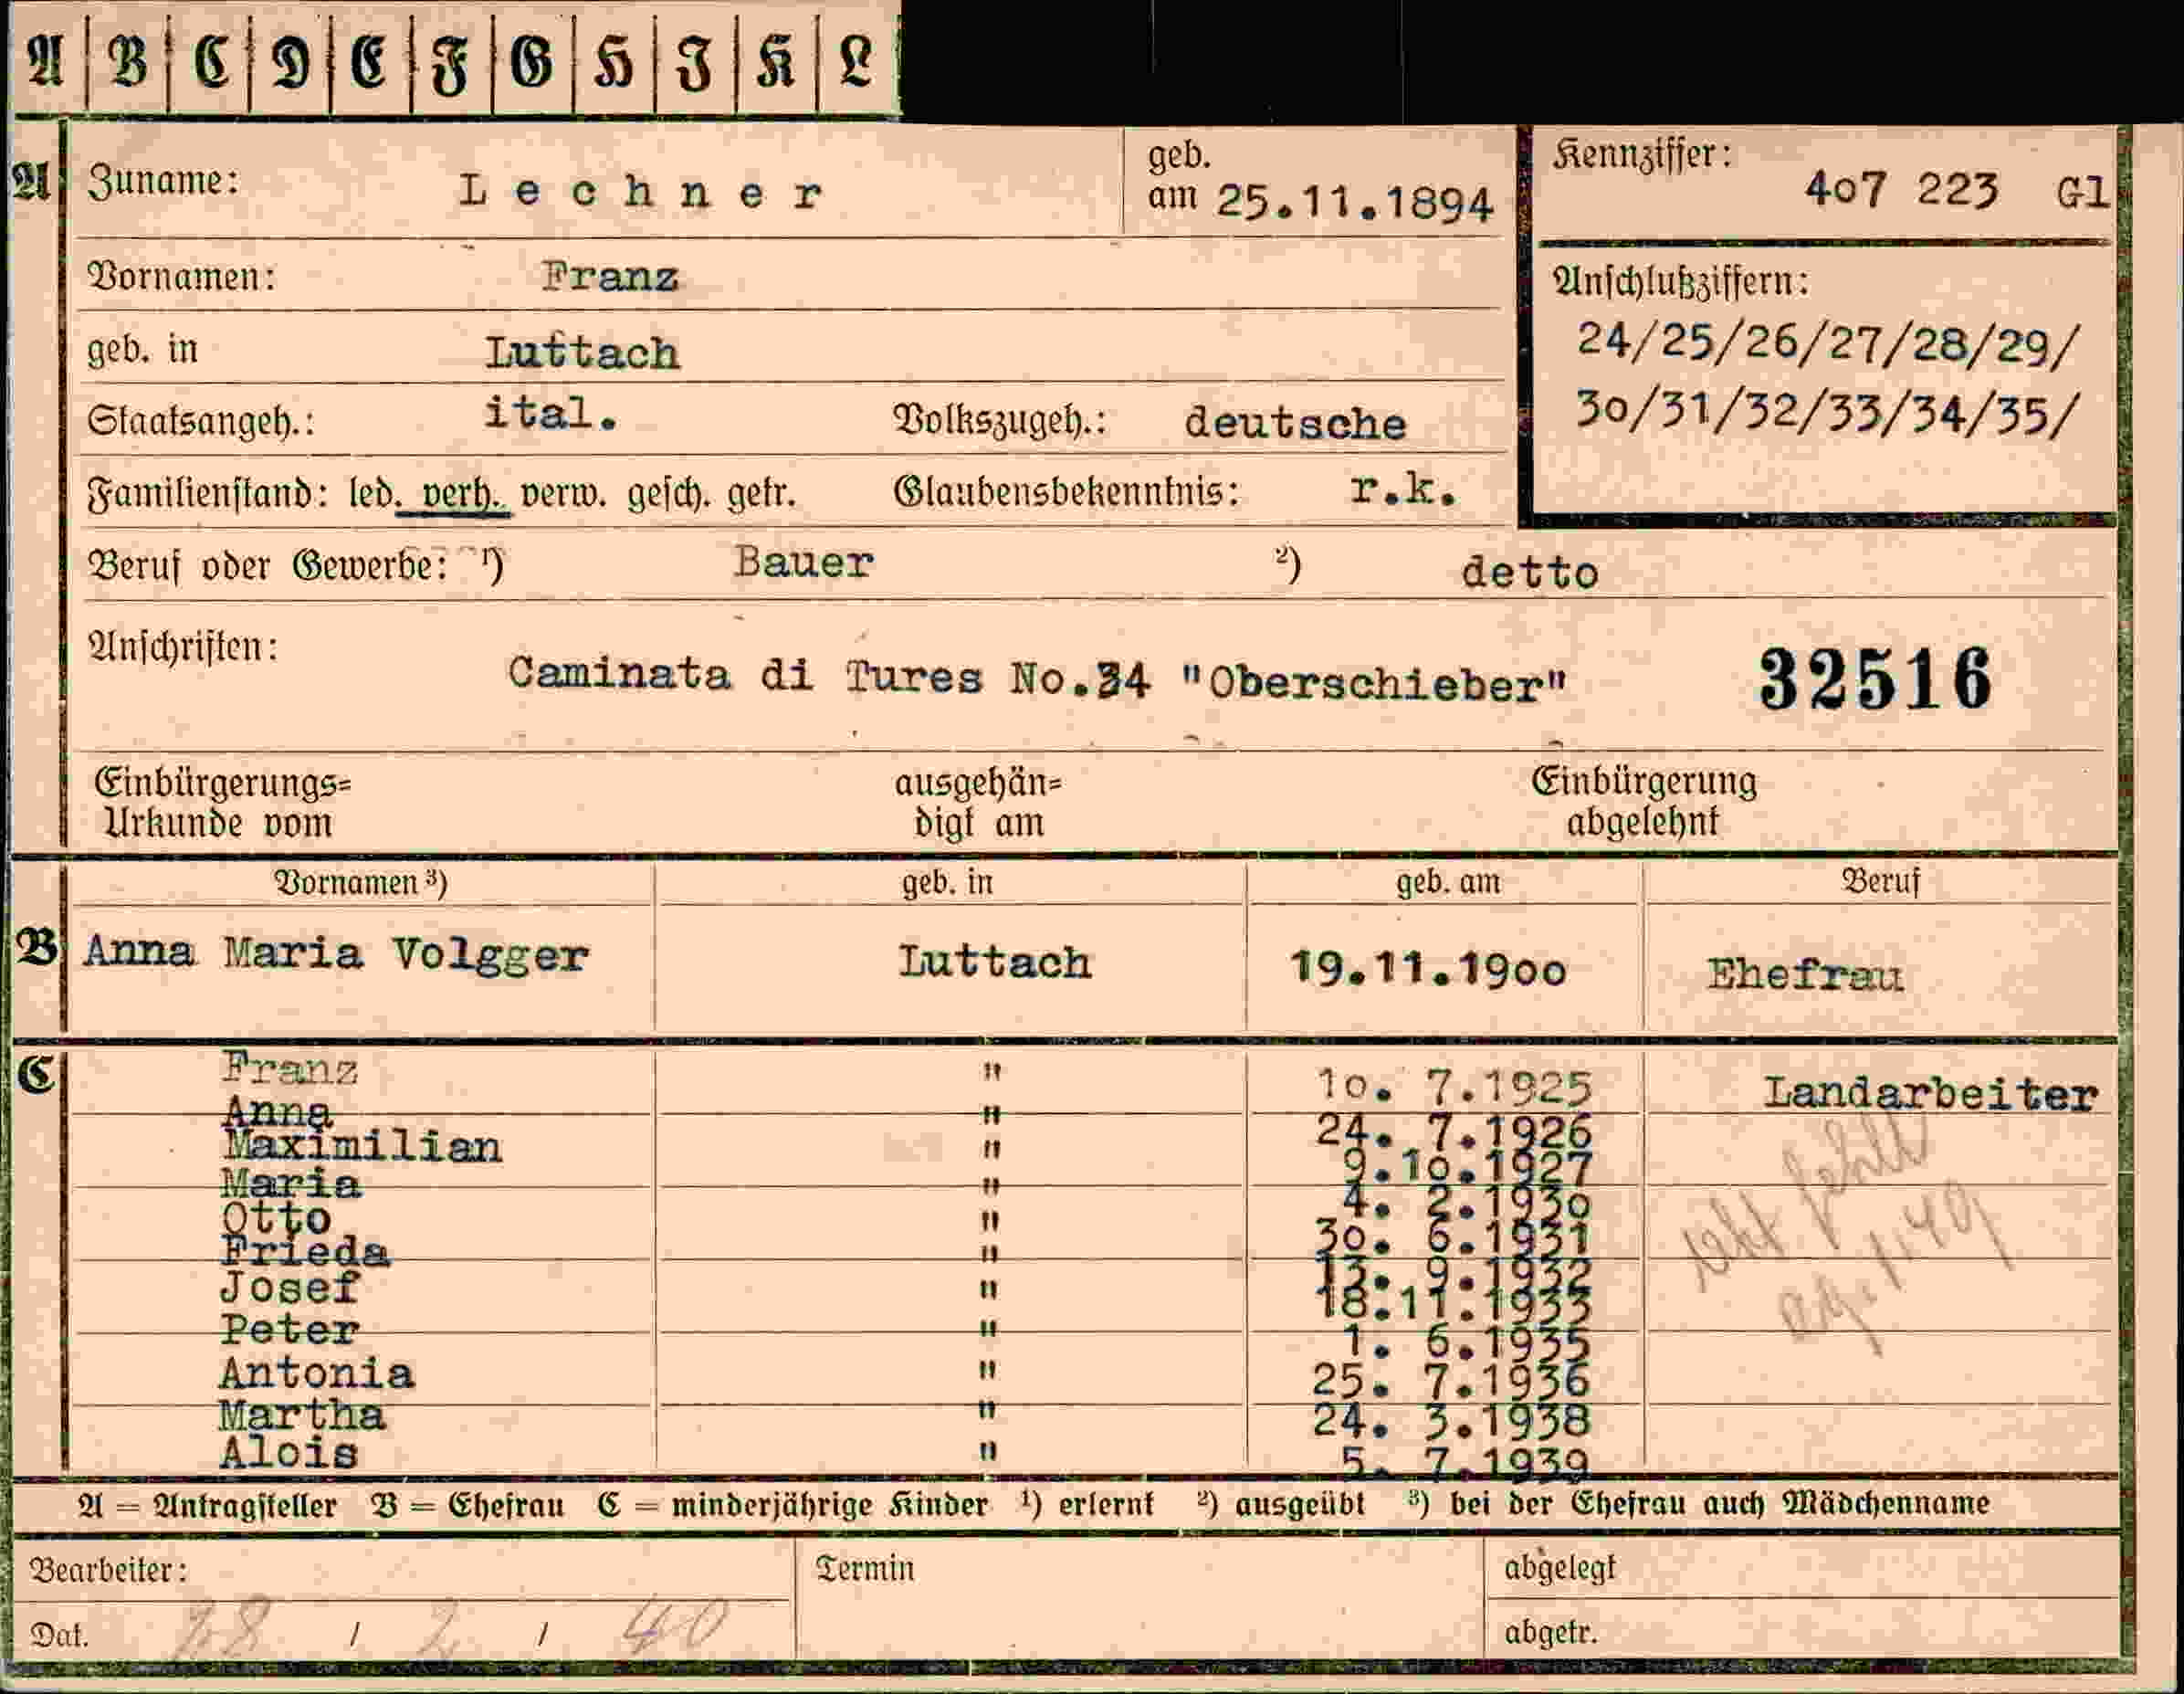 A B C D E F G H J K L
A Zuname: Lechner geb. am 25.11.1894
Kennziffer: 4o7 223 Gl
Vornamen: Franz
Anschlußziffern:
24/25/26/27/28/29/
3o/31/32/33/34/35/
geb. in Luttach
Staatsangeh.: ital. Volkszugeh.: deutsche
Familienstand: led. verh. verw. gesch. getr. Glaubensbekenntnis: r.k.
Beruf oder Gewerbe: ¹) Bauer ²) detto
Anschriften: Caminata di Tures No.34 "Oberschieber" 32516
Einbürgerungs= ausgehän= Einbürgerung
Urkunde vom digt am abgelehnt
Vornamen ³) geb. in geb. am Beruf
B Anna Maria Volgger Luttach 19.11.19oo Ehefrau
C Franz " 1o. 7.1925 Landarbeiter
Anna " 24. 7.1926
Maximilian " 9.1o.1927
Maria " 4. 2.193o
Otto " 3o. 6.1931
Frieda " 13. 9.1932
Josef " 18.11.1933
Peter " 1. 6.1935
Antonia " 25. 7.1936
Martha " 24. 3.1938
Alois " 5. 7.1939
A = Antragsteller B = Ehefrau C = minderjährige Kinder ¹) erlernt ²) ausgeübt ³) bei der Ehefrau auch Mädchenname
Bearbeiter: Termin abgelegt
Dat. 28 / 2 / 40 abgetr.